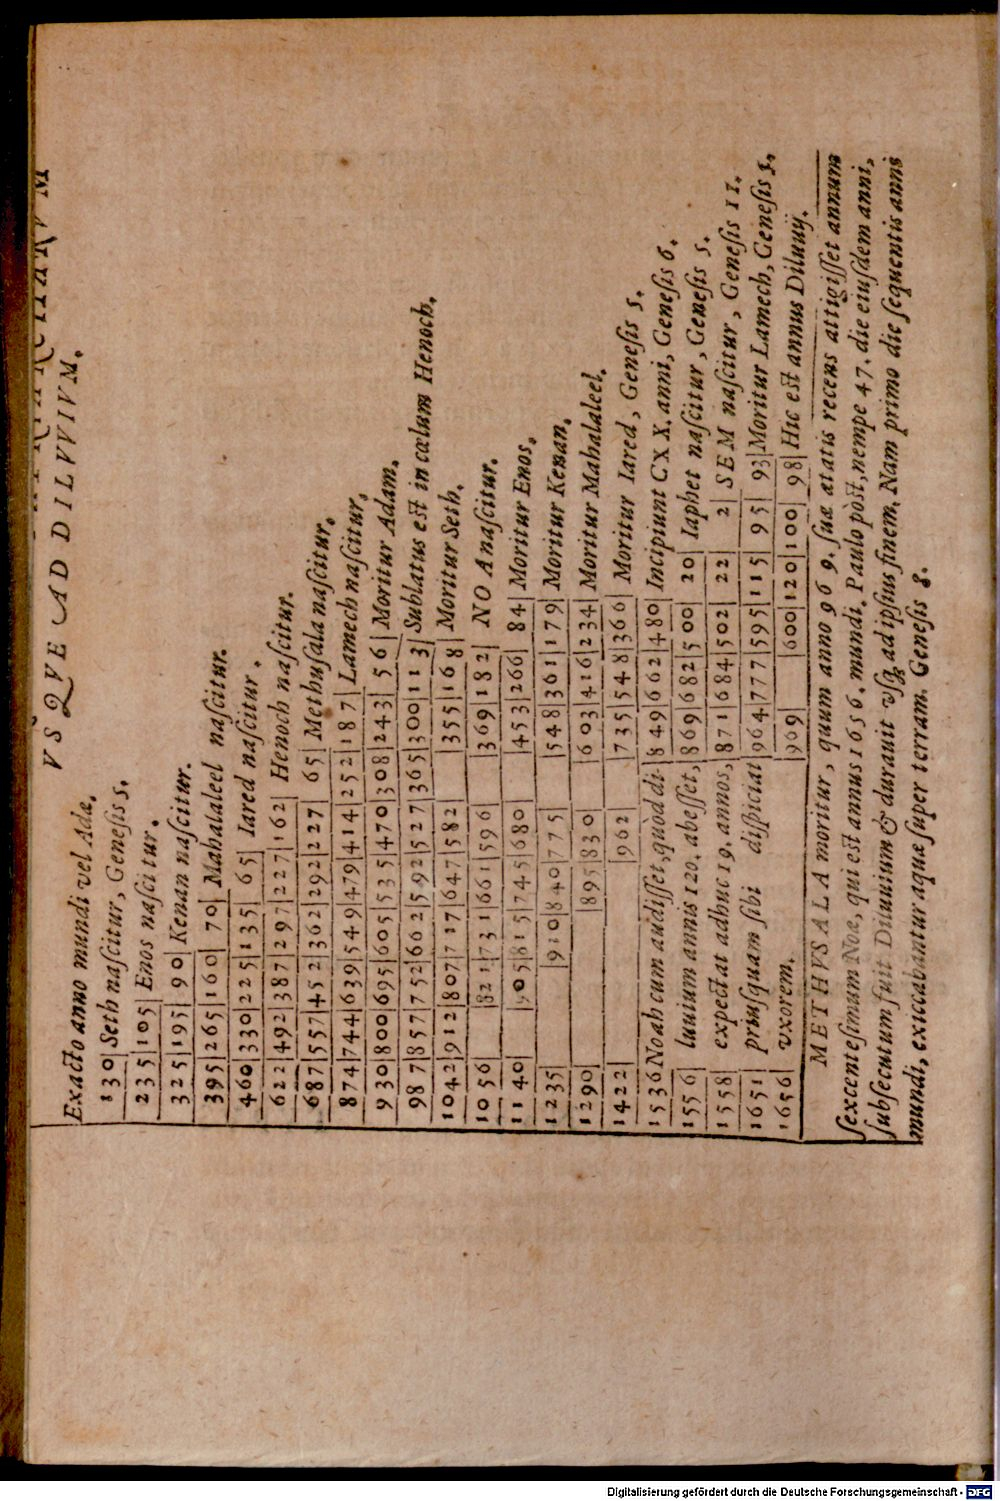 VSQVE AD DILVVIVM.
Exacto anno mundi vel Adæ.
130| Seth naſcitur, Geneſis 5.
235|105| Enos naſcitur.
325|195|90| Kenan naſcitur.
395|265|160|70| Mahalaleel naſcitur.
460|330|225|135|65| Iared naſcitur.
622|492|387|297|227|162| Henoch naſcitur.
687|557|452|362|292|227|65| Methuſala naſcitur.
874|744|639|549|479|414|252|187| Lamech naſcitur.
930|800|695|605|535|470|308|243|56| Moritur Adam.
987|857|752|662|592|527|365|300|113| Sublatus eſt in cœlum Henoch.
1042|912|807|717|647|582| |355|168| Moritur Seth.
1056| |821|731|661|596| |369|182| NOA naſcitur.
1140| |905|815|745|680| |453|266|84| Moritur Enos.
1235| |910|840|775| |548|361|179| Moritur Kenan.
1290| |895|830| |603|416|234| Moritur Mahalaleel.
1422| |962| |735|548|366| Moritur Iared, Geneſis 5.
1536 Noah cum audiſſet, quòd di- |849|662|480| Incipiunt CXX. anni, Geneſis 6.
1556| luuium annis 120. abeſſet, |869|682|500|20| Iaphet naſcitur, Geneſis 5.
1558| expectat adhuc 19. annos, |871|684|502|22|2| SEM naſcitur, Geneſis 11.
1651| priuſquam ſibi diſpiciat |964|777|595|115|95|93| Moritur Lamech, Geneſis 5.
1656| vxorem. |969| |600|120|100|98| Hic eſt annus Diluuij.
METHVSALA moritur, quum anno 969. ſuæ ætatis recens attigiſſet annum
ſexcenteſimum Noæ, qui eſt annus 1656. mundi. Paulo pòſt, nempe 47. die eiuſdem anni,
ſubſecutum fuit Diluuium & durauit vſq; ad ipſius finem. Nam primo die ſequentis anns
mundi, exiccabantur aquæ ſuper terram. Geneſis 8.
Digitalisierung gefördert durch die Deutsche Forschungsgemeinschaft - DFG